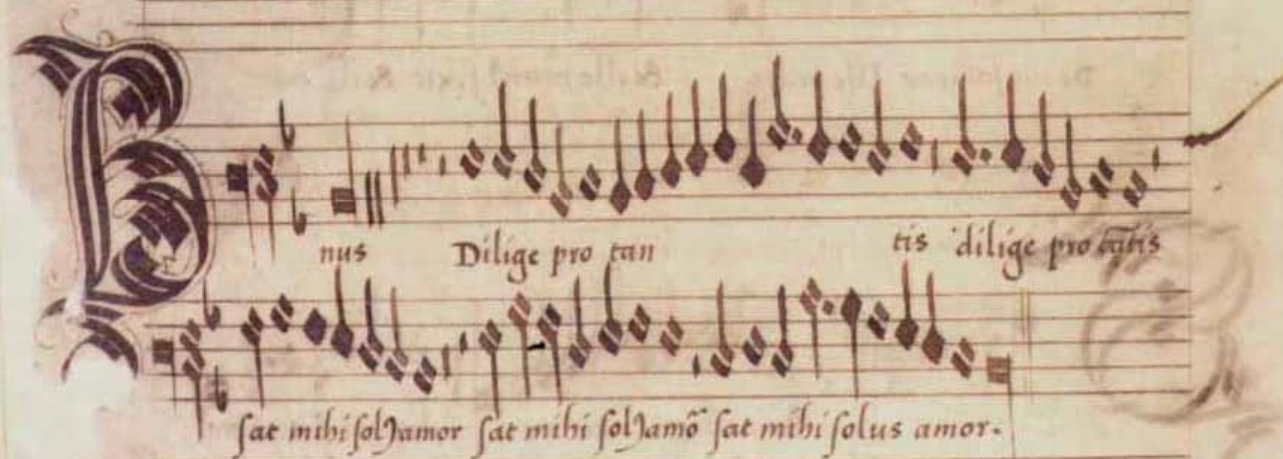 B
nus Dilige pro tan tis dilige pro tātis
sat mihi solꝰ amor sat mihi solꝰ amõ sat mihi solus amor.